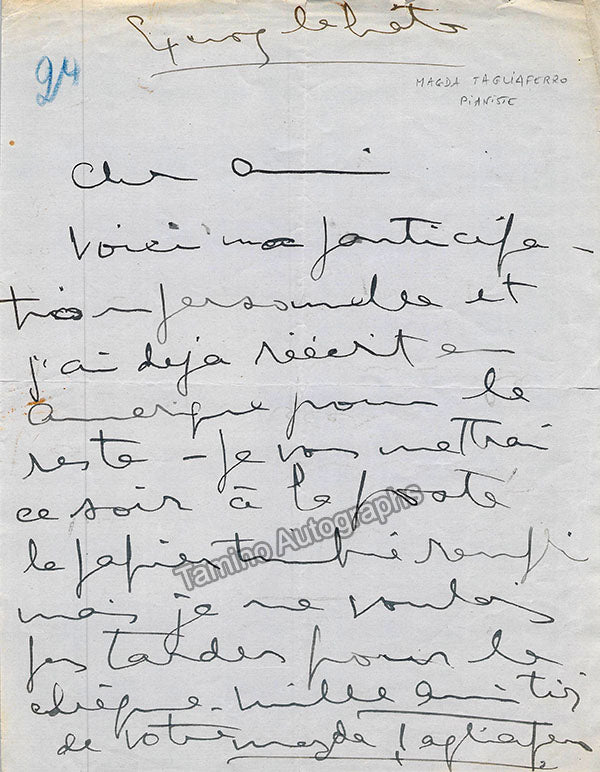 Excusez la hâte
24
MAGDA TAGLIAFERRO
PIANISTE
Cher ami
Voici ma participa-
tion personnelle et
j'ai déjà réécrit en
Amérique pour le
reste - Je vous mettrai
ce soir à la poste
le papier timbré rempli
Tamino Autographs
mais je ne voulais
pas tarder pour le
chèque. Mille amitiés
de votre Magda Tagliaferro